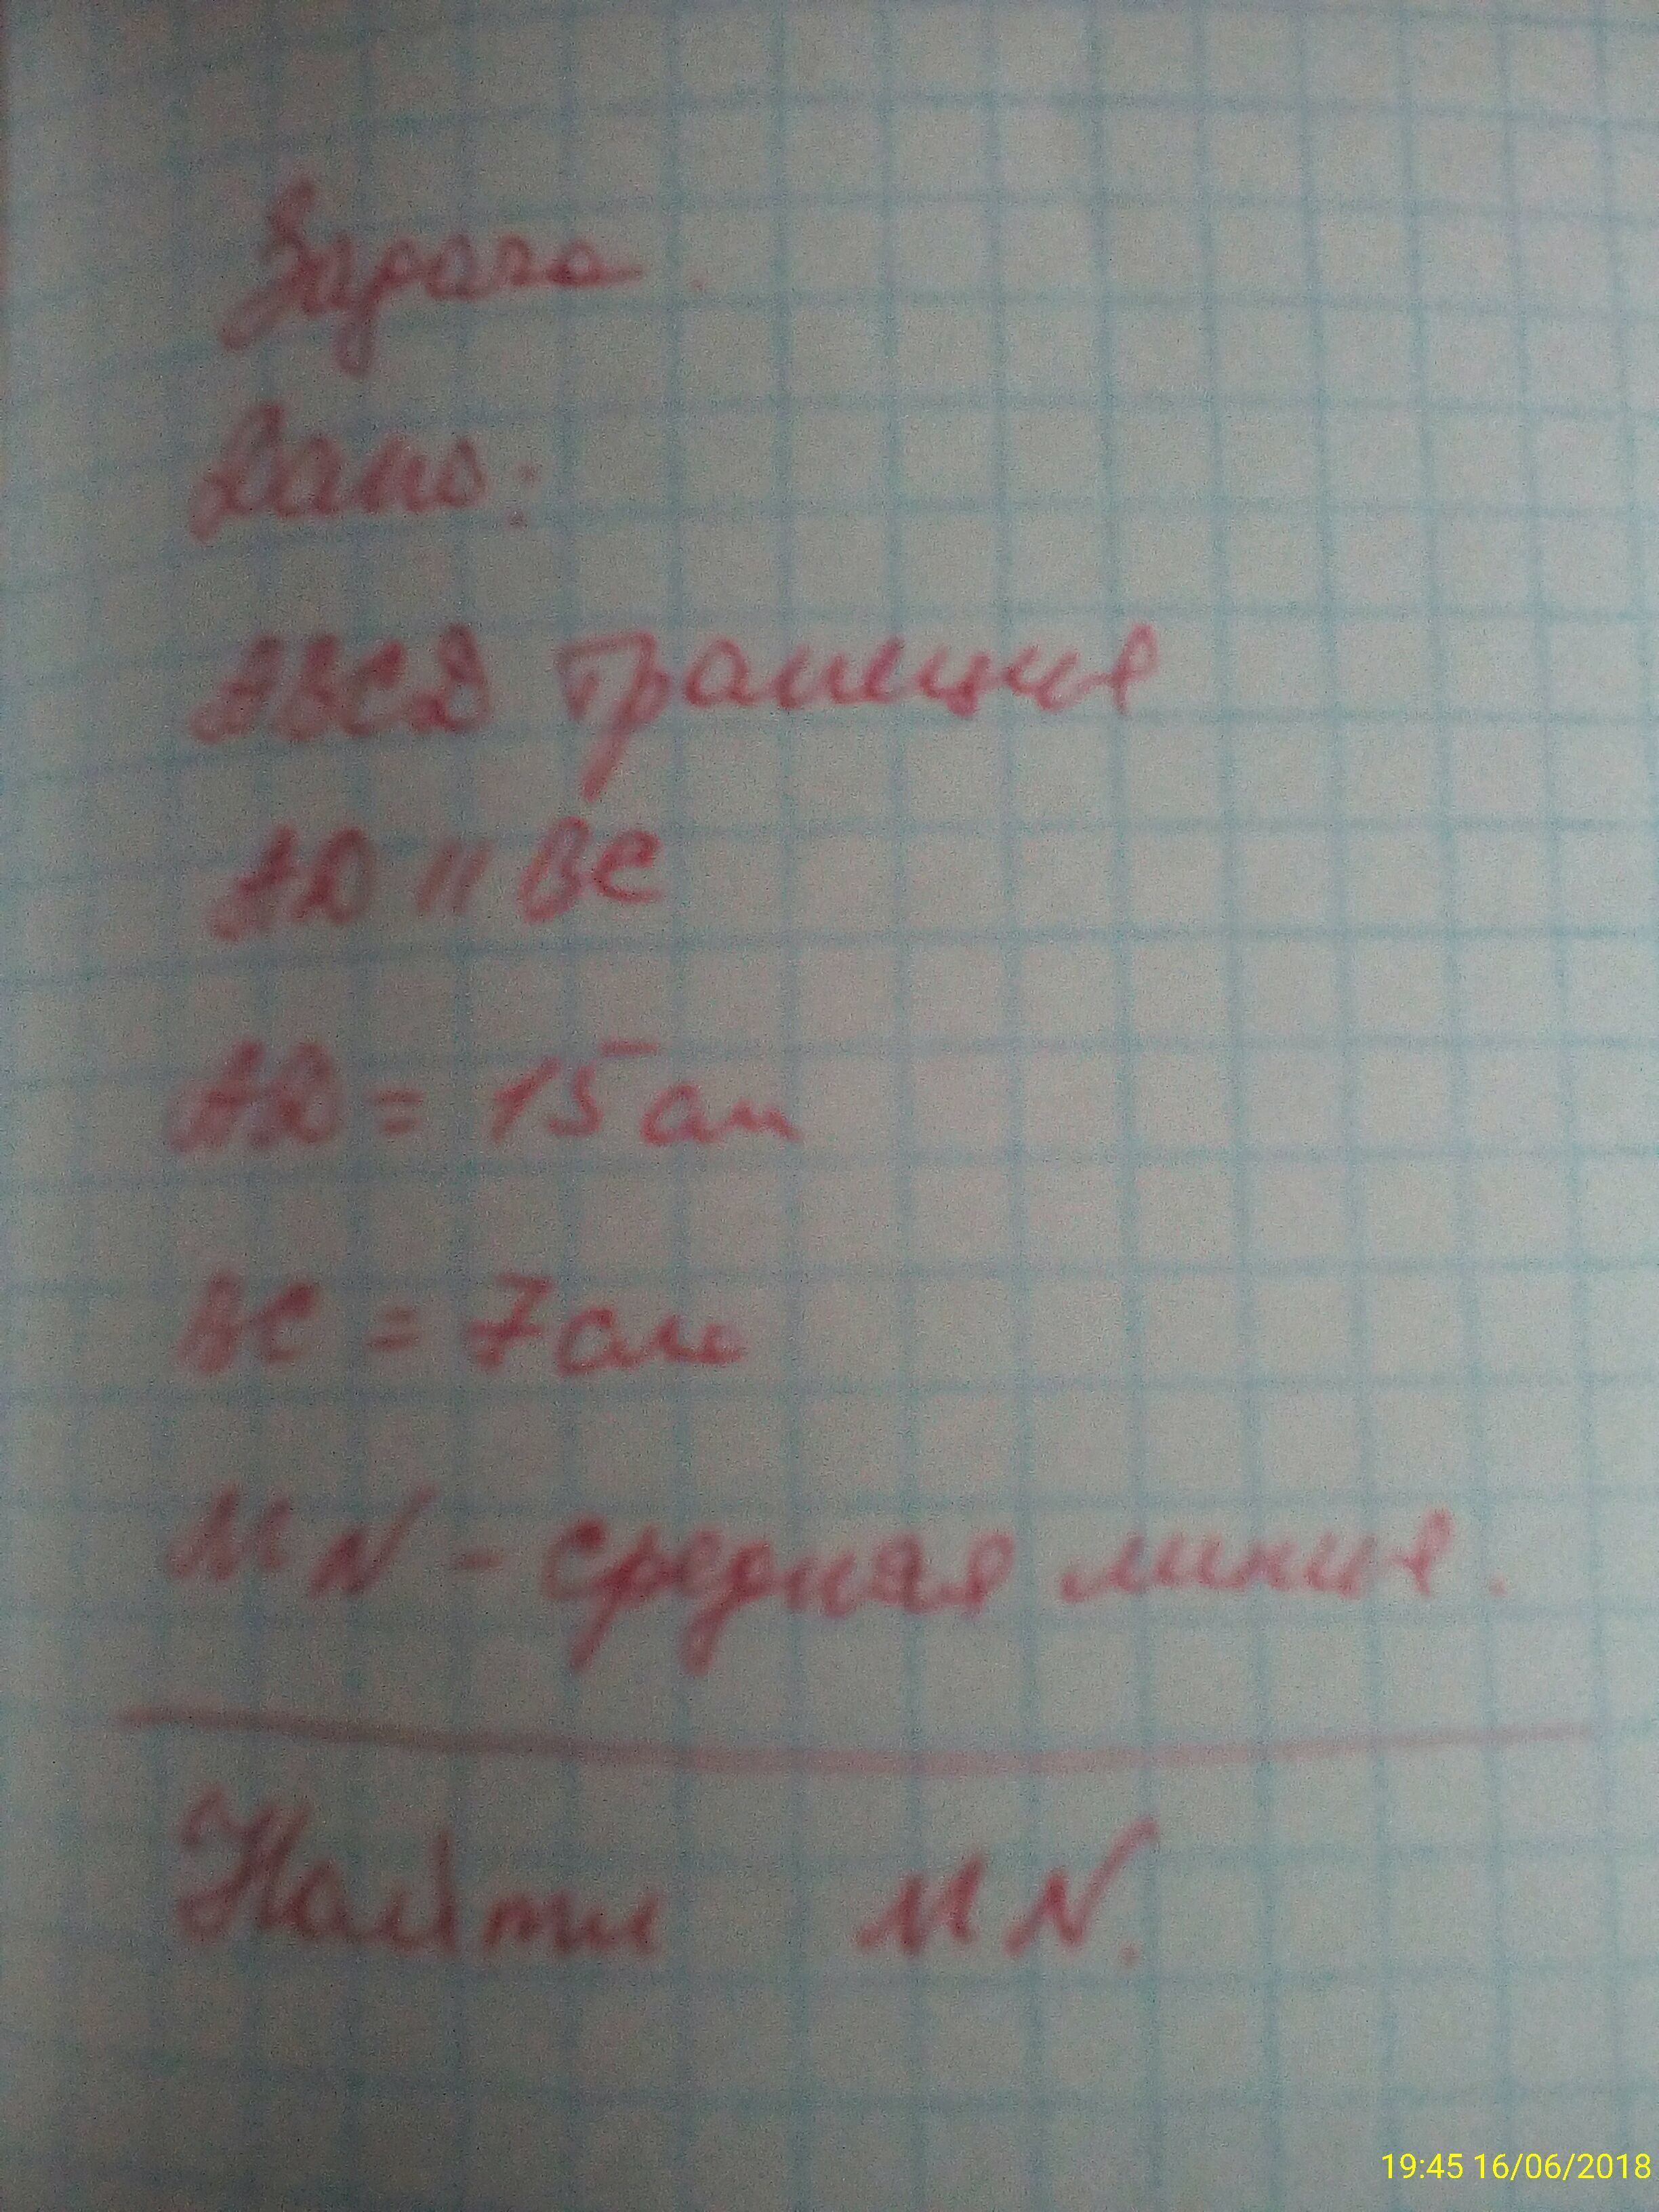 Задача.
Дано:
ABCD трапеция
AD || BC
AD = 15 см
BC = 7 см
MN - средняя линия.
Найти MN.
19:45 16/06/2018